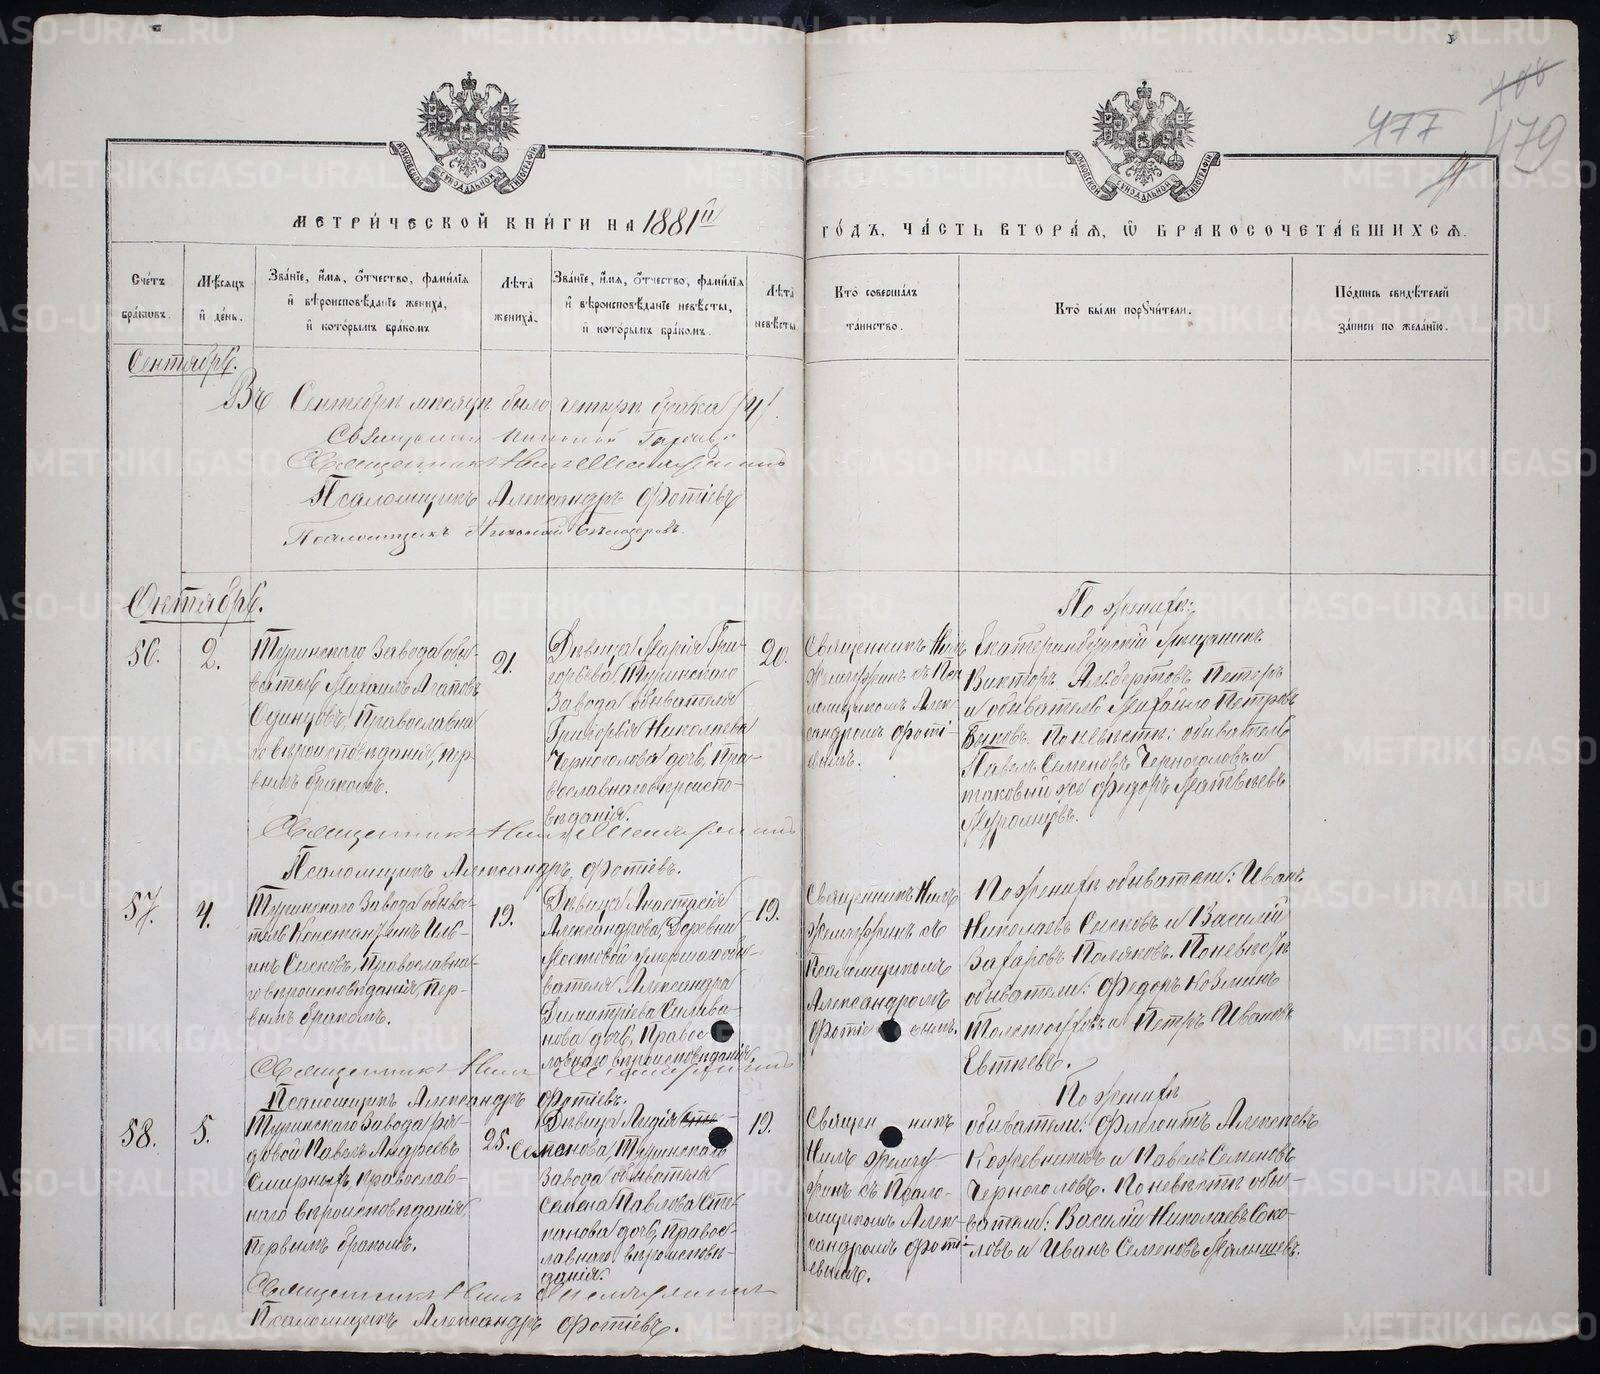 МЕТРИ́ЧЕСКОЙ КНИ́ГИ НА 1881й ГО́ДЪ, ЧА́СТЬ ВТОРА́Я, Ѡ БРАКОСОЧЕТА́ВШИХСЯ.
477
479
Сче́тъ бра́ковъ.
Мѣ́сяцъ и де́нь.
Зва́нїе, и́мя, о́тчество, фами́лїя и вѣроисповѣ́данїе жениха, и кото́рымъ бра́комъ
Лѣта̀ жениха̀.
Зва́нїе, и́мя, о́тчество, фами́лїя и вѣроисповѣ́данїе невѣсты, и кото́рымъ бра́комъ.
Лѣта̀ невѣсты
Кто̀ соверша́лъ та́инство.
Кто̀ бы́ли порꙋчи́тели.
По́дпись свидѣ́телей за́писи по жела́нїю.
Сентябрь.
Въ Сентябрѣ мѣсяцѣ было четыре брака /4/.
Священникъ Николай
Священникъ Нилъ
Псаломщикъ Александръ Фотіевъ
Псаломщикъ Николай
Октябрь.
56.
2.
Туринскаго Завода обы-
ватель Михаилъ Агаповъ
Одинцовъ, Православна
го вѣроисповѣданія, пер-
вымъ бракомъ.
21.
Дѣвица Марія Гри-
горьева, Туринскаго
Завода обывателя
Григорья Николаева
Черноголова дочь, Пра-
вославнаго вѣроиспо-
вѣданія.
20.
Священникъ Нилъ
съ Пса
ломщикомъ Алек-
сандромъ Фоті-
евымъ.
По женихѣ:
Екатеринбургскій Мѣщанинъ
Викторъ Альбертовъ Петеръ
и обыватель Михайло Петровъ
Быковъ. По невѣстѣ: обыватель
Павелъ Семеновъ Черноголовъ и
таковый же Федоръ Матвѣевъ
Муромцовъ.
Священникъ Нилъ
Псаломщикъ Александръ Фотіевъ.
57.
4.
Туринскаго Завода обыва-
тель Константинъ Иль-
инъ Сысковъ, Православна-
го вѣроисповѣданія, Пер-
вымъ бракомъ.
19.
Дѣвица Анастасія
Александрова, Деревни
Мостовой умершаго обы-
вателя Александра
Димитріева Силива-
нова дочь, Правос
лавнаго вѣроисповѣданія.
19.
Священникъ Нилъ
съ
Псаломщикомъ
Александромъ
Фотіевымъ.
По женихѣ обыватели: Иванъ
Николаевъ Сысковъ и Василій
Захаровъ Поляковъ. По невѣстѣ
обыватели: Федоръ Козминъ
и Петръ Ивановъ
Евтѣевъ.
Священникъ Нилъ
Псаломщикъ Александръ Фотіевъ.
58.
5.
Туринскаго Завода ря-
довой Павелъ Андреевъ
Смирныхъ, православ-
наго вѣроисповѣданія
Первымъ бракомъ.
25.
Дѣвица Лидія
Семенова, Туринскаго
Завода обывателя
Семена Павлова Сте-
панова дочь, Правос-
лавнаго вѣроисповѣ-
данія.
19.
Священникъ
Нилъ
съ Псало-
мщикомъ Алек-
сандромъ Фоті-
евымъ.
По женихѣ
обыватели: Ферапонтъ Алексѣевъ
Кожевниковъ и Павелъ Семеновъ
Черноголовъ. По невѣстѣ обы-
ватели: Василій Николаевъ Соко-
ловъ и Иванъ Семеновъ Малышевъ.
Священникъ Нилъ
Псаломщикъ Александръ Фотіевъ.
METRIKI.GASO-URAL.RU